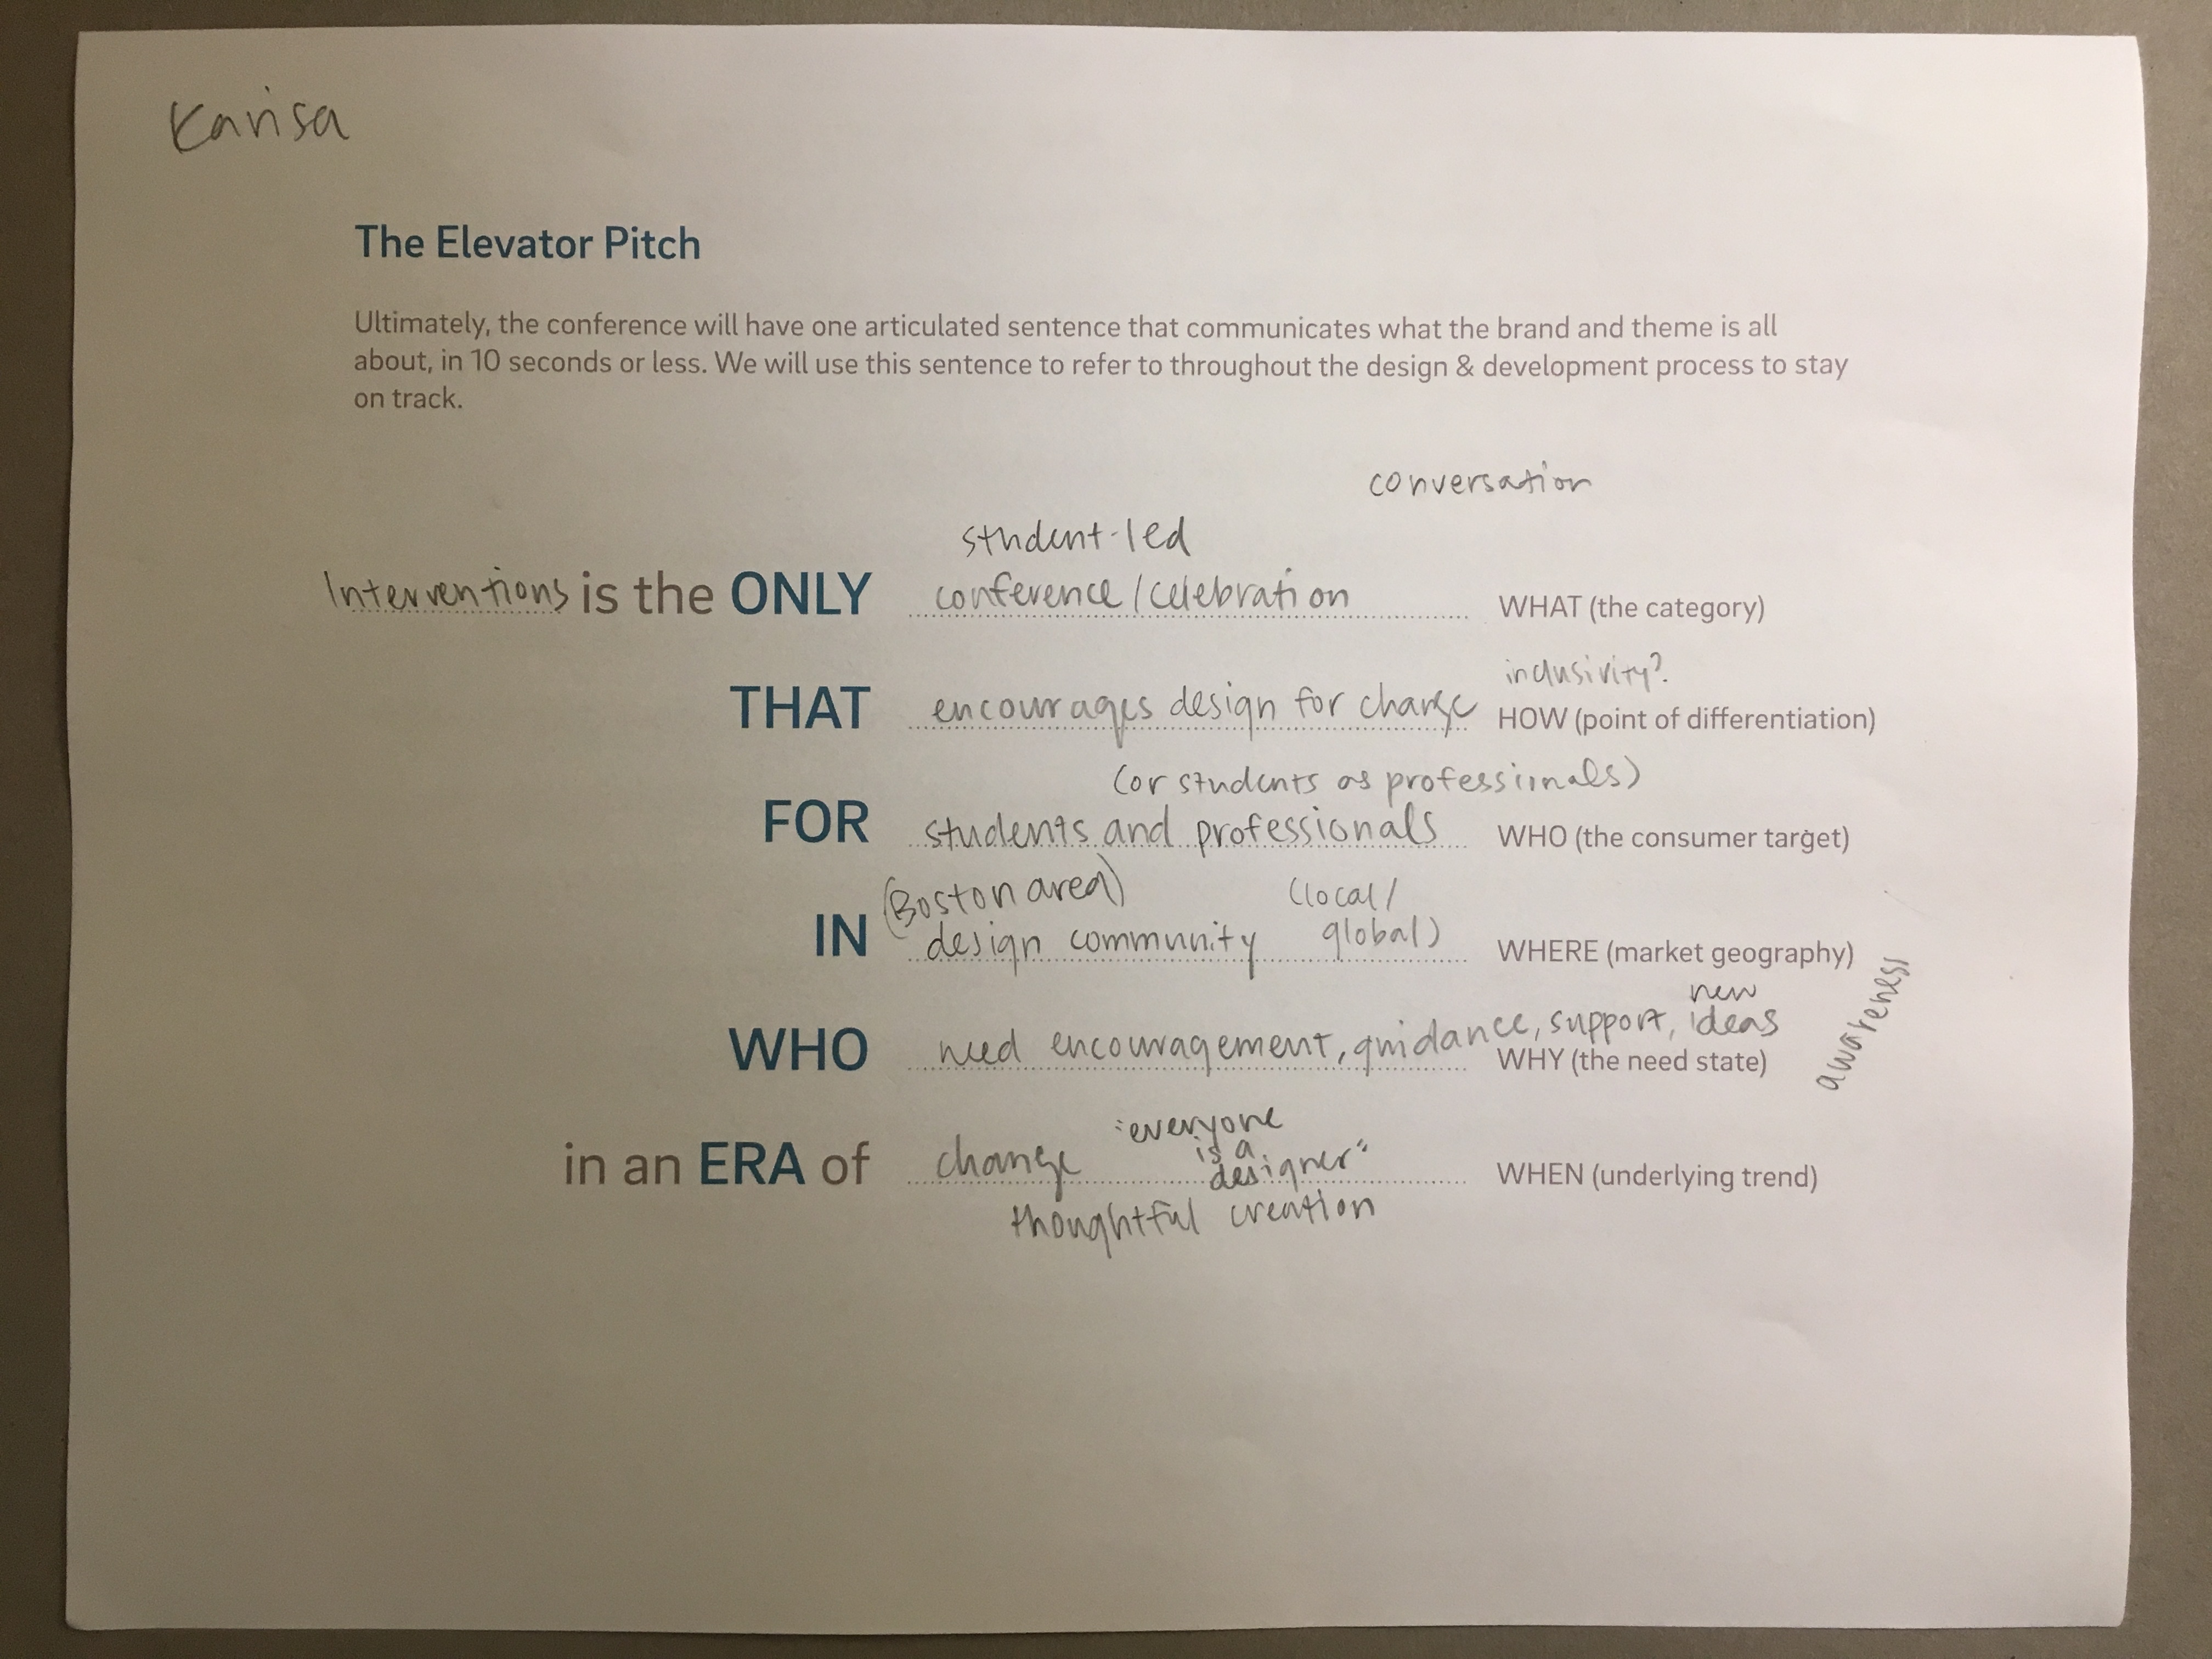 Karisa
The Elevator Pitch
Ultimately, the conference will have one articulated sentence that communicates what the brand and theme is all
about, in 10 seconds or less. We will use this sentence to refer to throughout the design & development process to stay
on track.
conversation
student-led
Interventions is the ONLY conference/celebration WHAT (the category)
inclusivity?
THAT encourages design for change HOW (point of differentiation)
(or students as professionals)
FOR students and professionals WHO (the consumer target)
(Boston area) (local/
IN design community global) WHERE (market geography)
new
WHO need encouragement, guidance, support, ideas WHY (the need state)
awareness
"everyone
is a
in an ERA of change designer" WHEN (underlying trend)
thoughtful creation